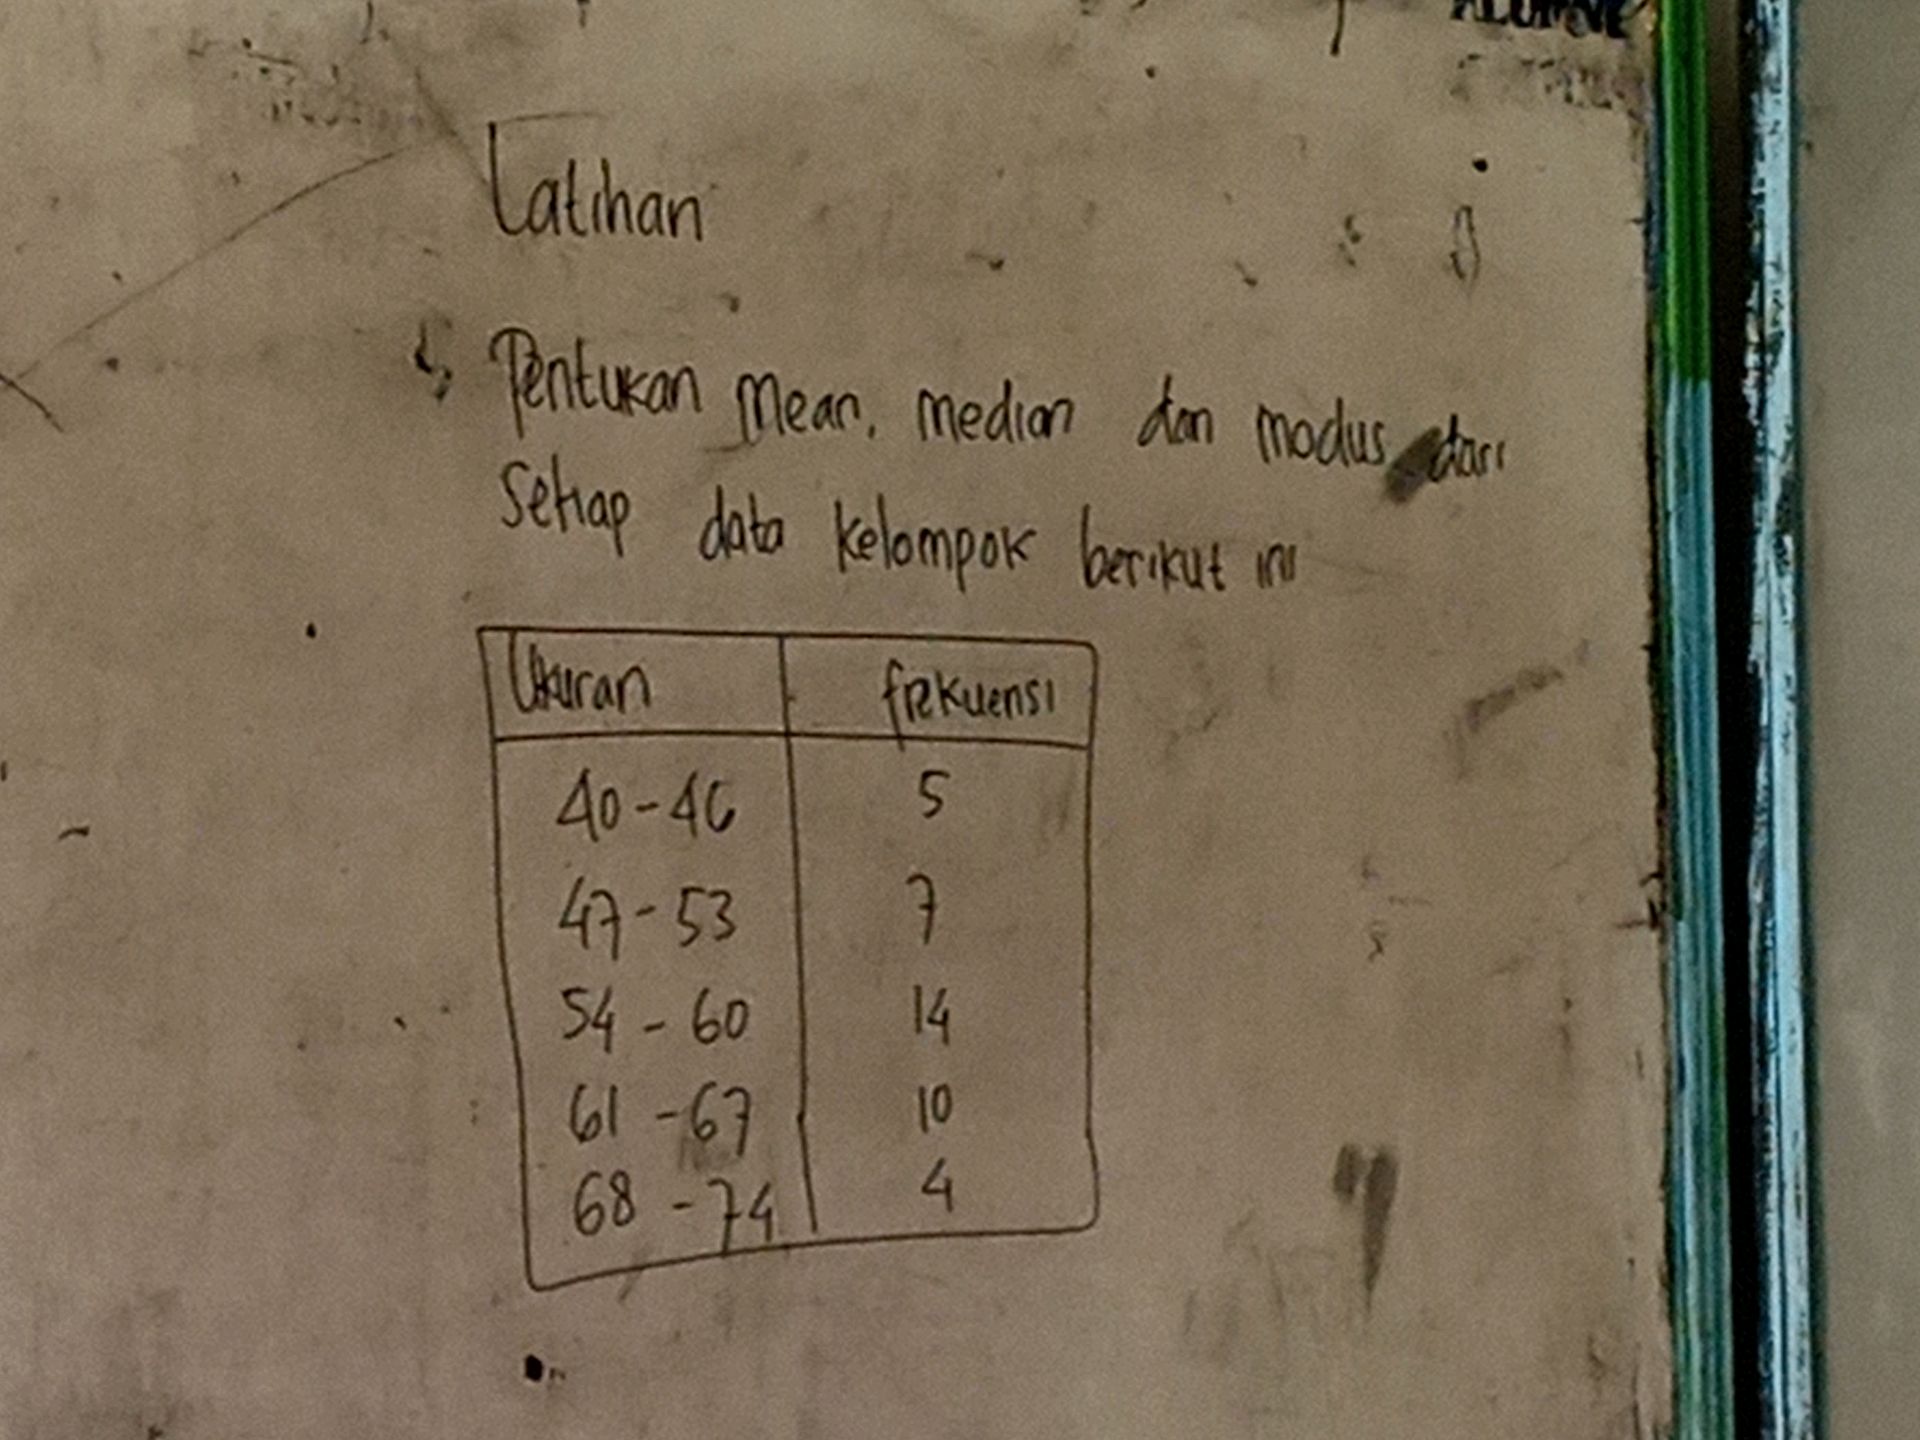 Latihan
Tentukan mean, median dan modus dari
setiap data kelompok berikut ini
Ukuran frekuensi
40-46 5
47-53 7
54-60 14
61-67 10
68-74 4